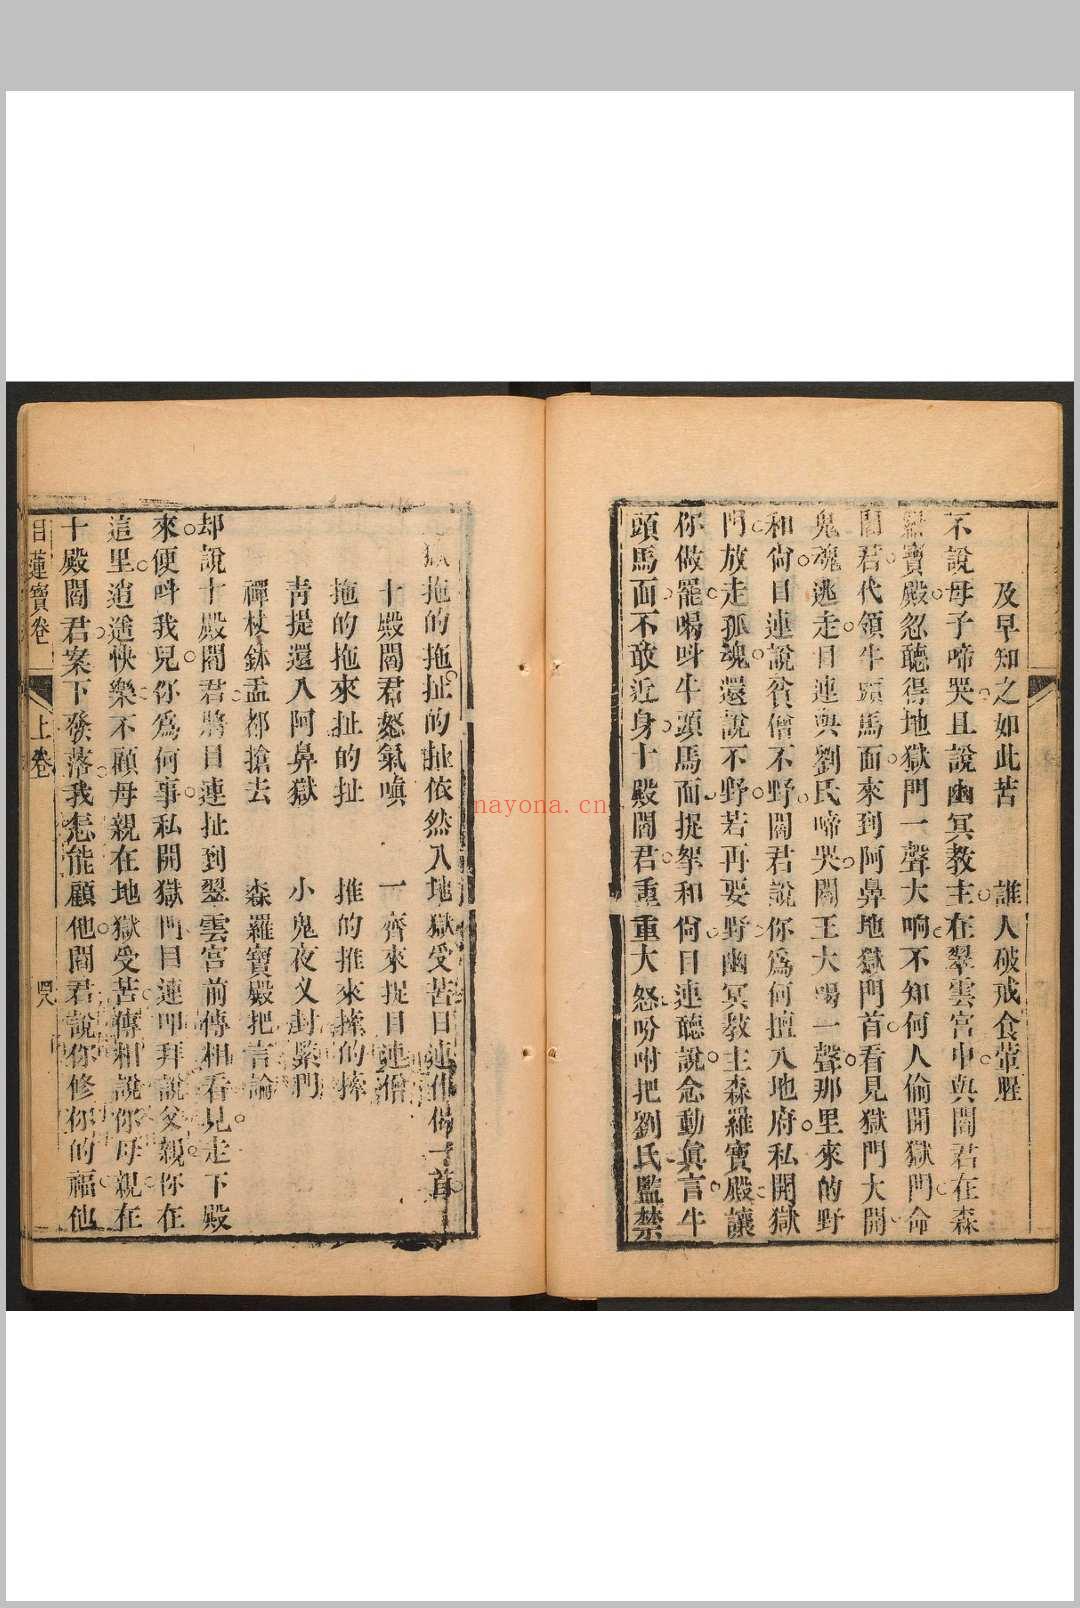 及早知之如此苦 誰人破戒食葷腥
不說母子啼哭且說幽冥教主在翠雲宮中與閻君在森
羅寶殿忽聽得地獄門一聲大响不知何人偷開獄門命
閻君代領牛頭馬面來到阿鼻地獄門首看見獄門大開
鬼魂逃走目連與劉氏啼哭閻王大喝一聲那里來的野
和尙目連說貧僧不野閻君說你爲何擅入地府私開獄
門放走孤魂還說不野若再要野幽冥教主森羅寶殿讓
你做罷喝呌牛頭馬面捉拏和尙目連聽說念動眞言牛
頭馬面不敢近身十殿閻君重重大怒吩咐把劉氏監禁
獄拖的拖扯的扯依然入地獄受苦目連作偈一首
十殿閻君怒氣嗔 一齊來捉目連僧
拖的拖來扯的扯 推的推來捧的捧
靑提還入阿鼻獄 小鬼夜叉封緊門
禪杖鉢盂都搶去 森羅寶殿把言論
却說十殿閻君將目連扯到翠雲宮前傅相看見走下殿
來便呌我兒你爲何事私開獄門目連叩拜說父親你在
這里逍遥快樂不顧母親在地獄受苦傅相說你母親在
十殿閻君案下發落我怎能顧他閻君說你修你的福他
目蓮寶卷 上卷 四八
nayona.cn